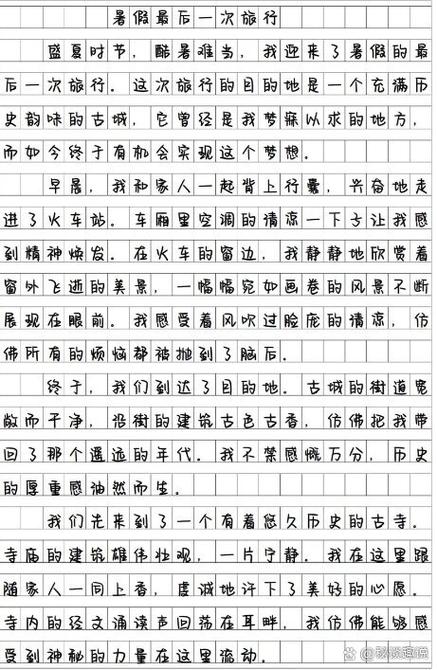 暑假最后一次旅行
盛夏时节，酷暑难当，我迎来了暑假的最
后一次旅行。这次旅行的目的地是一个充满历
史韵味的古城，它曾经是我梦寐以求的地方，
而如今终于有机会实现这个梦想。
早晨，我和家人一起背上行囊，兴奋地走
进了火车站。车厢里空调的清凉一下子让我感
到精神焕发。在火车的窗边，我静静地欣赏着
窗外飞逝的美景，一幅幅宛如画卷的风景不断
展现在眼前。我感受着风吹过脸庞的清凉，仿
佛所有的烦恼都被抛到了脑后。
终于，我们到达了目的地。古城的街道宽
敞而干净，沿街的建筑古色古香，仿佛把我带
回了那个遥远的年代。我不禁感慨万分，历史
的厚重感油然而生。
我们先来到了一个有着悠久历史的古寺。
寺庙的建筑雄伟壮观，一片宁静。我在这里跟
随家人一同上香，虔诚地许下了美好的心愿。
寺内的经文诵读声回荡在耳畔，我仿佛能够感
受到神秘的力量在这里流动。